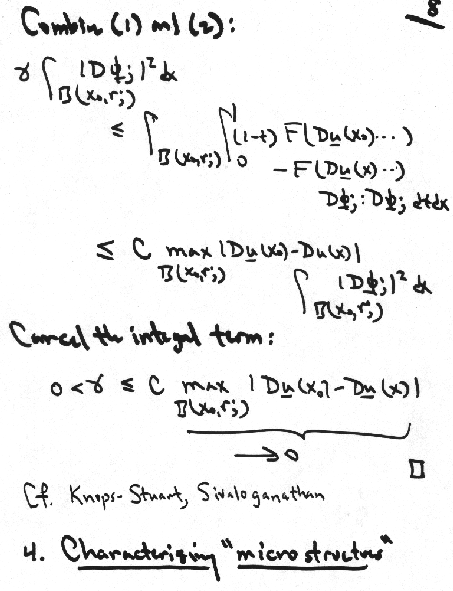 18
Combine (1) and (2):
γ ∫_{B(x₀,rⱼ)} |Dφⱼ|² dx
≤ ∫_{B(x₀,rⱼ)} ∫₀¹ (1-t) F(Du(x₀)...)
- F(Du(x)...)
Dφⱼ : Dφⱼ dtdx
≤ C max_{B(x₀,rⱼ)} |Du(x₀)-Du(x)|
∫_{B(x₀,rⱼ)} |Dφⱼ|² dx
Cancel the integral term:
0<γ ≤ C max_{B(x₀,rⱼ)} |Du(x₀)-Du(x)|
→0
□
Cf. Knops-Stuart, Sivaloganathan
4. Characterizing "microstructures"